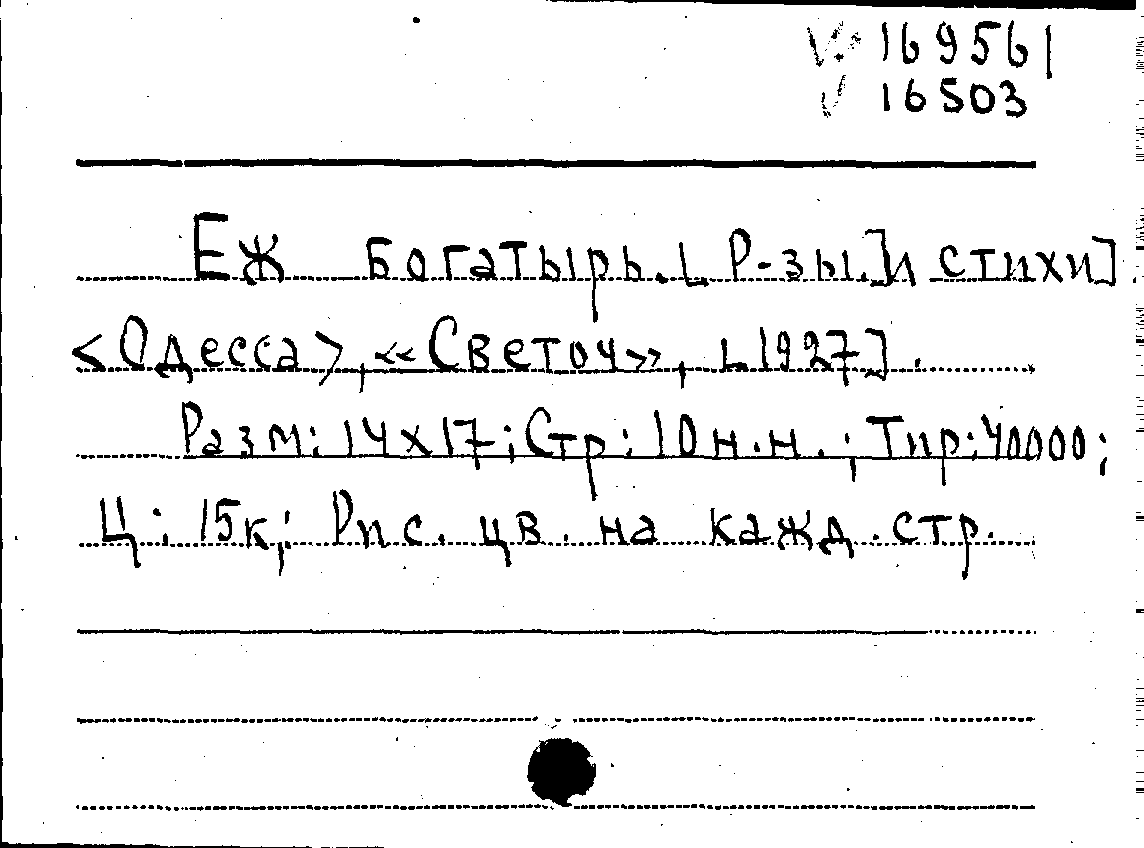 V 169561
V 16503
Еж богатырь. [Р-зы.] и стихи]
<Одесса>, «Светоч», [1927].
Разм: 14х17; Стр: 10 н.н.; Тир: 40000;
Ц: 15к; Рис. цв. на кажд. стр.